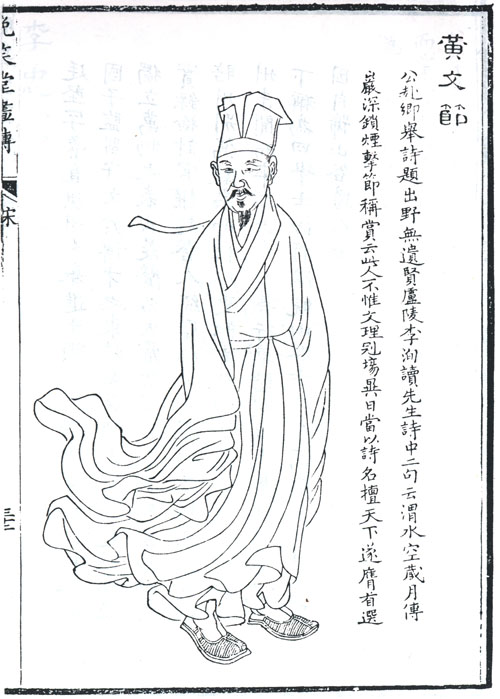 黃文節
公赴鄉舉詩題出野無遺賢廬陵李洵讀先生詩中二句云渭水空藏月傳
巖深鎖煙擊節稱賞云此人不惟文理冠場異日當以詩名擅天下遂膺首選
晚笑堂畫傳
宋